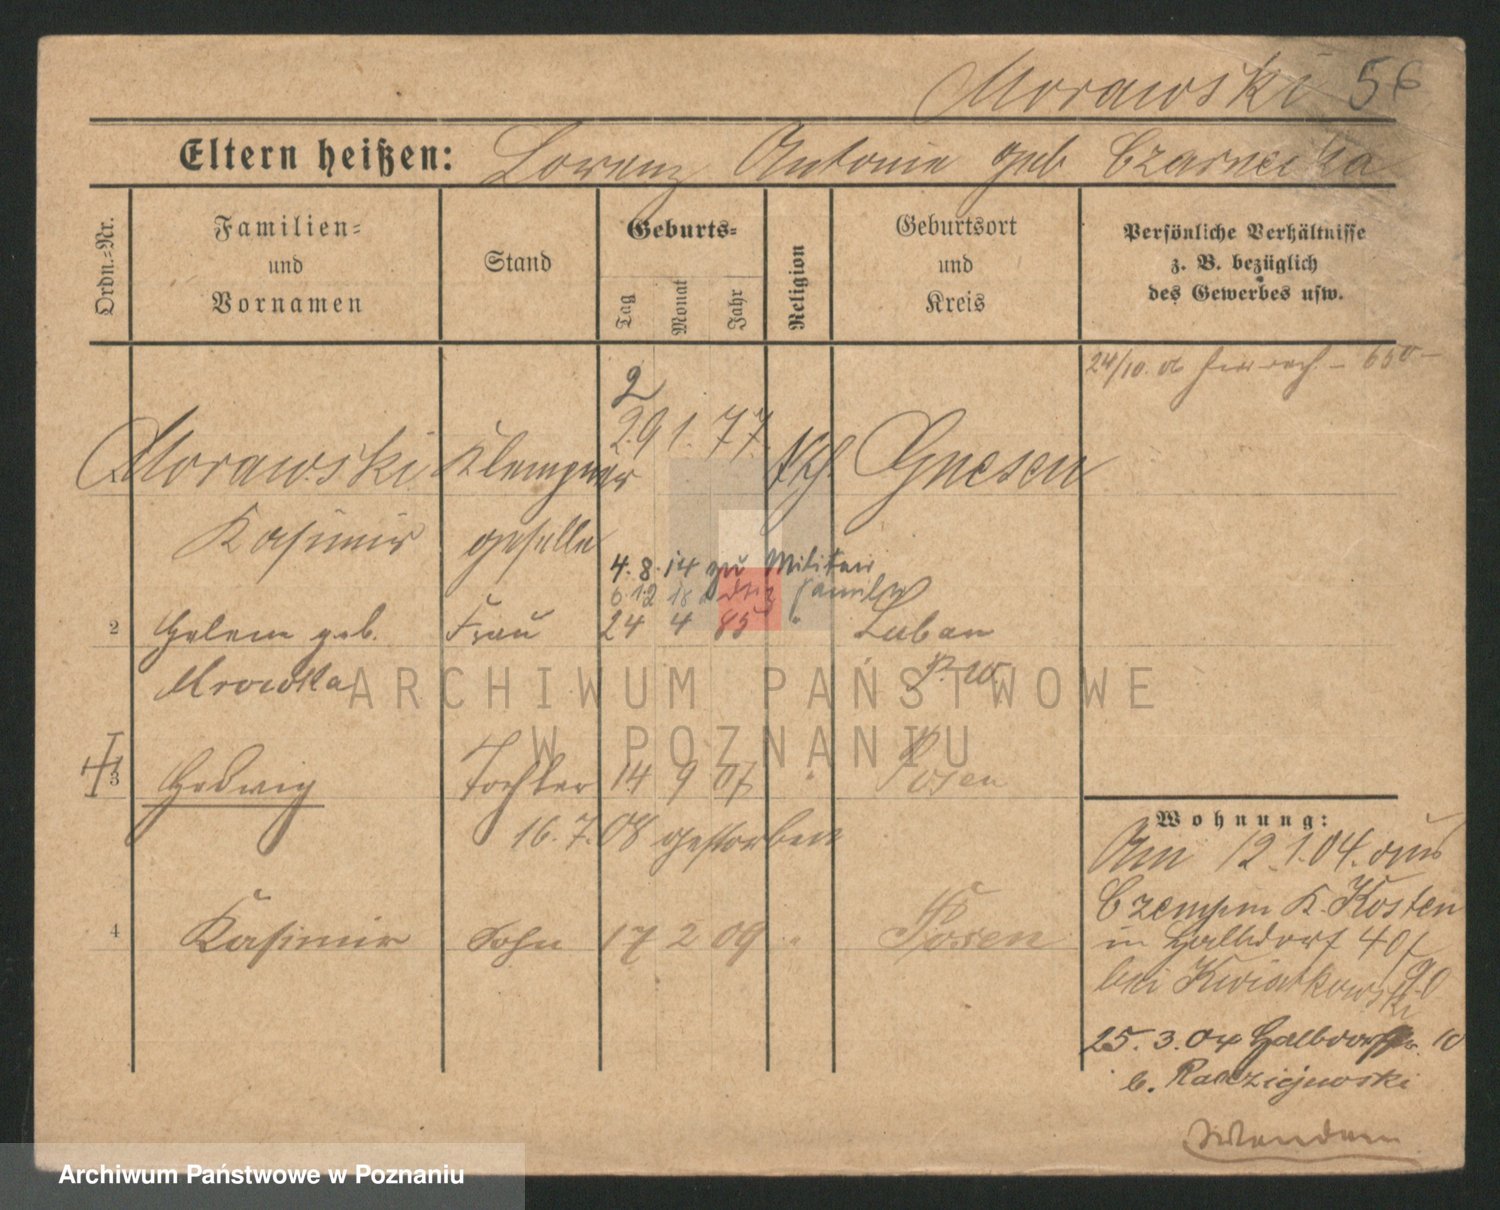 Morawski 56
Eltern heißen: Lorenz Antonie geb Czarnecka
Ordn.-Nr.
Familien- und Vornamen
Stand
Geburts-
Tag Monat Jahr
Religion
Geburtsort und Kreis
Persönliche Verhältnisse z. B. bezüglich des Gewerbes usw.
24/10. 650 –
2
29 1. 77.
Morawski Klempner kth. Gnesen
Kasimir geselle
4. 8. 14 zu Militair
6 12 18 Familie
2 Helene geb. Frau 24 4 85 " Luban
Mrowka P. W.
3 Hedwig Tochter 14 9 07 " Posen
16. 7. 08 gestorben
4 Kasimir Sohn 17 2 09 " Posen
Wohnung:
Am 12.1.04. aus
Czempin K. Kosten
in Halbdorf 40
bei Kwiatkowski
25. 3. 04 Halbdorfstr. 10
b. Radziejewski
Wenden
ARCHIWUM PAŃSTWOWE
W POZNANIU
Archiwum Państwowe w Poznaniu